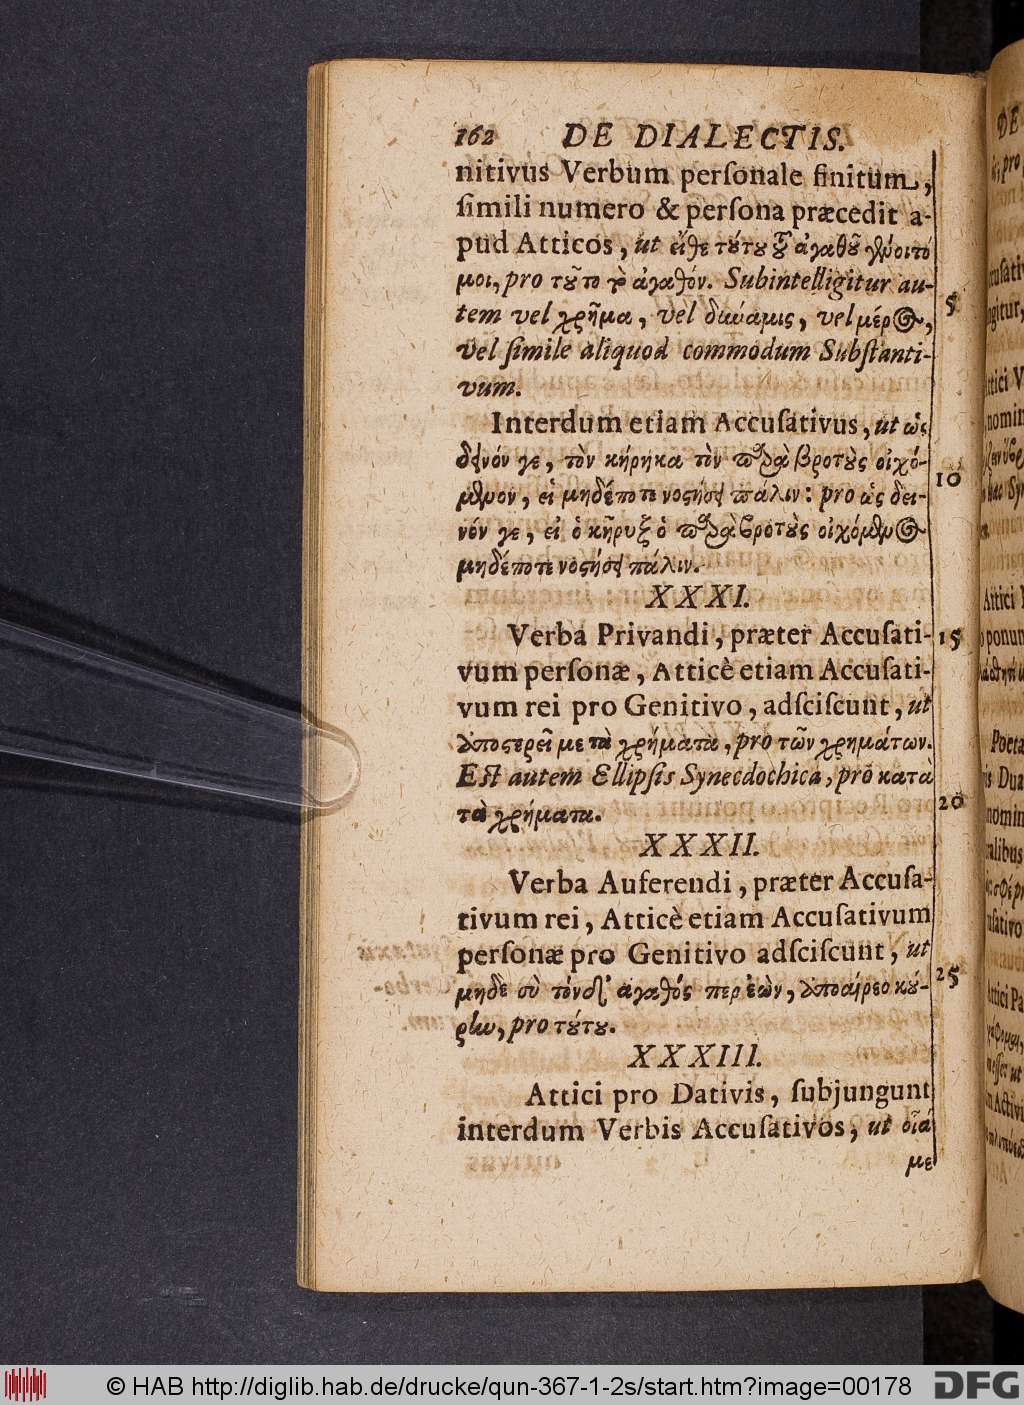 162 DE DIALECTIS.
nitivus Verbum perſonale finitum,
ſimili numero & perſona præcedit a-
pud Atticos, ut εἴθε τούτου τοῦ ἀγαθοῦ γένοιτό
μοι, pro τοῦτο τὸ ἀγαθόν. Subintelligitur au-
tem vel χρῆμα, vel δύναμις, vel μέρος,
vel ſimile aliquod commodum Subſtanti-
vum.
Interdum etiam Accuſativus, ut ὡς
δεινόν γε, τὸν κήρυκα τὸν παρὰ βροτοὺς οἰχό-
μενον, εἰ μηδέποτε νοστήσει πάλιν: pro ὡς δει-
νόν γε, εἰ ὁ κῆρυξ ὁ παρὰ βροτοὺς οἰχόμενος
μηδέποτε νοστήσει πάλιν.
XXXI.
Verba Privandi, præter Accuſati-
vum perſonæ, Atticè etiam Accuſati-
vum rei pro Genitivo, adſciſcunt, ut
ἀποστερεῖ με τὰ χρήματα, pro τῶν χρημάτων.
Eſt autem Ellipſis Synecdochica, pro κατὰ
τὰ χρήματα.
XXXII.
Verba Auferendi, præter Accuſa-
tivum rei, Atticè etiam Accuſativum
perſonæ pro Genitivo adſciſcunt, ut
μηδὲ σὺ τόνδ' ἀγαθός περ ἐὼν, ἀποαίρεο κού-
ρην, pro τούτου.
XXXIII.
Attici pro Dativis, ſubjungunt
interdum Verbis Accuſativos, ut οἷά
με
5
10
15
20
25
© HAB http://diglib.hab.de/drucke/qun-367-1-2s/start.htm?image=00178
DFG